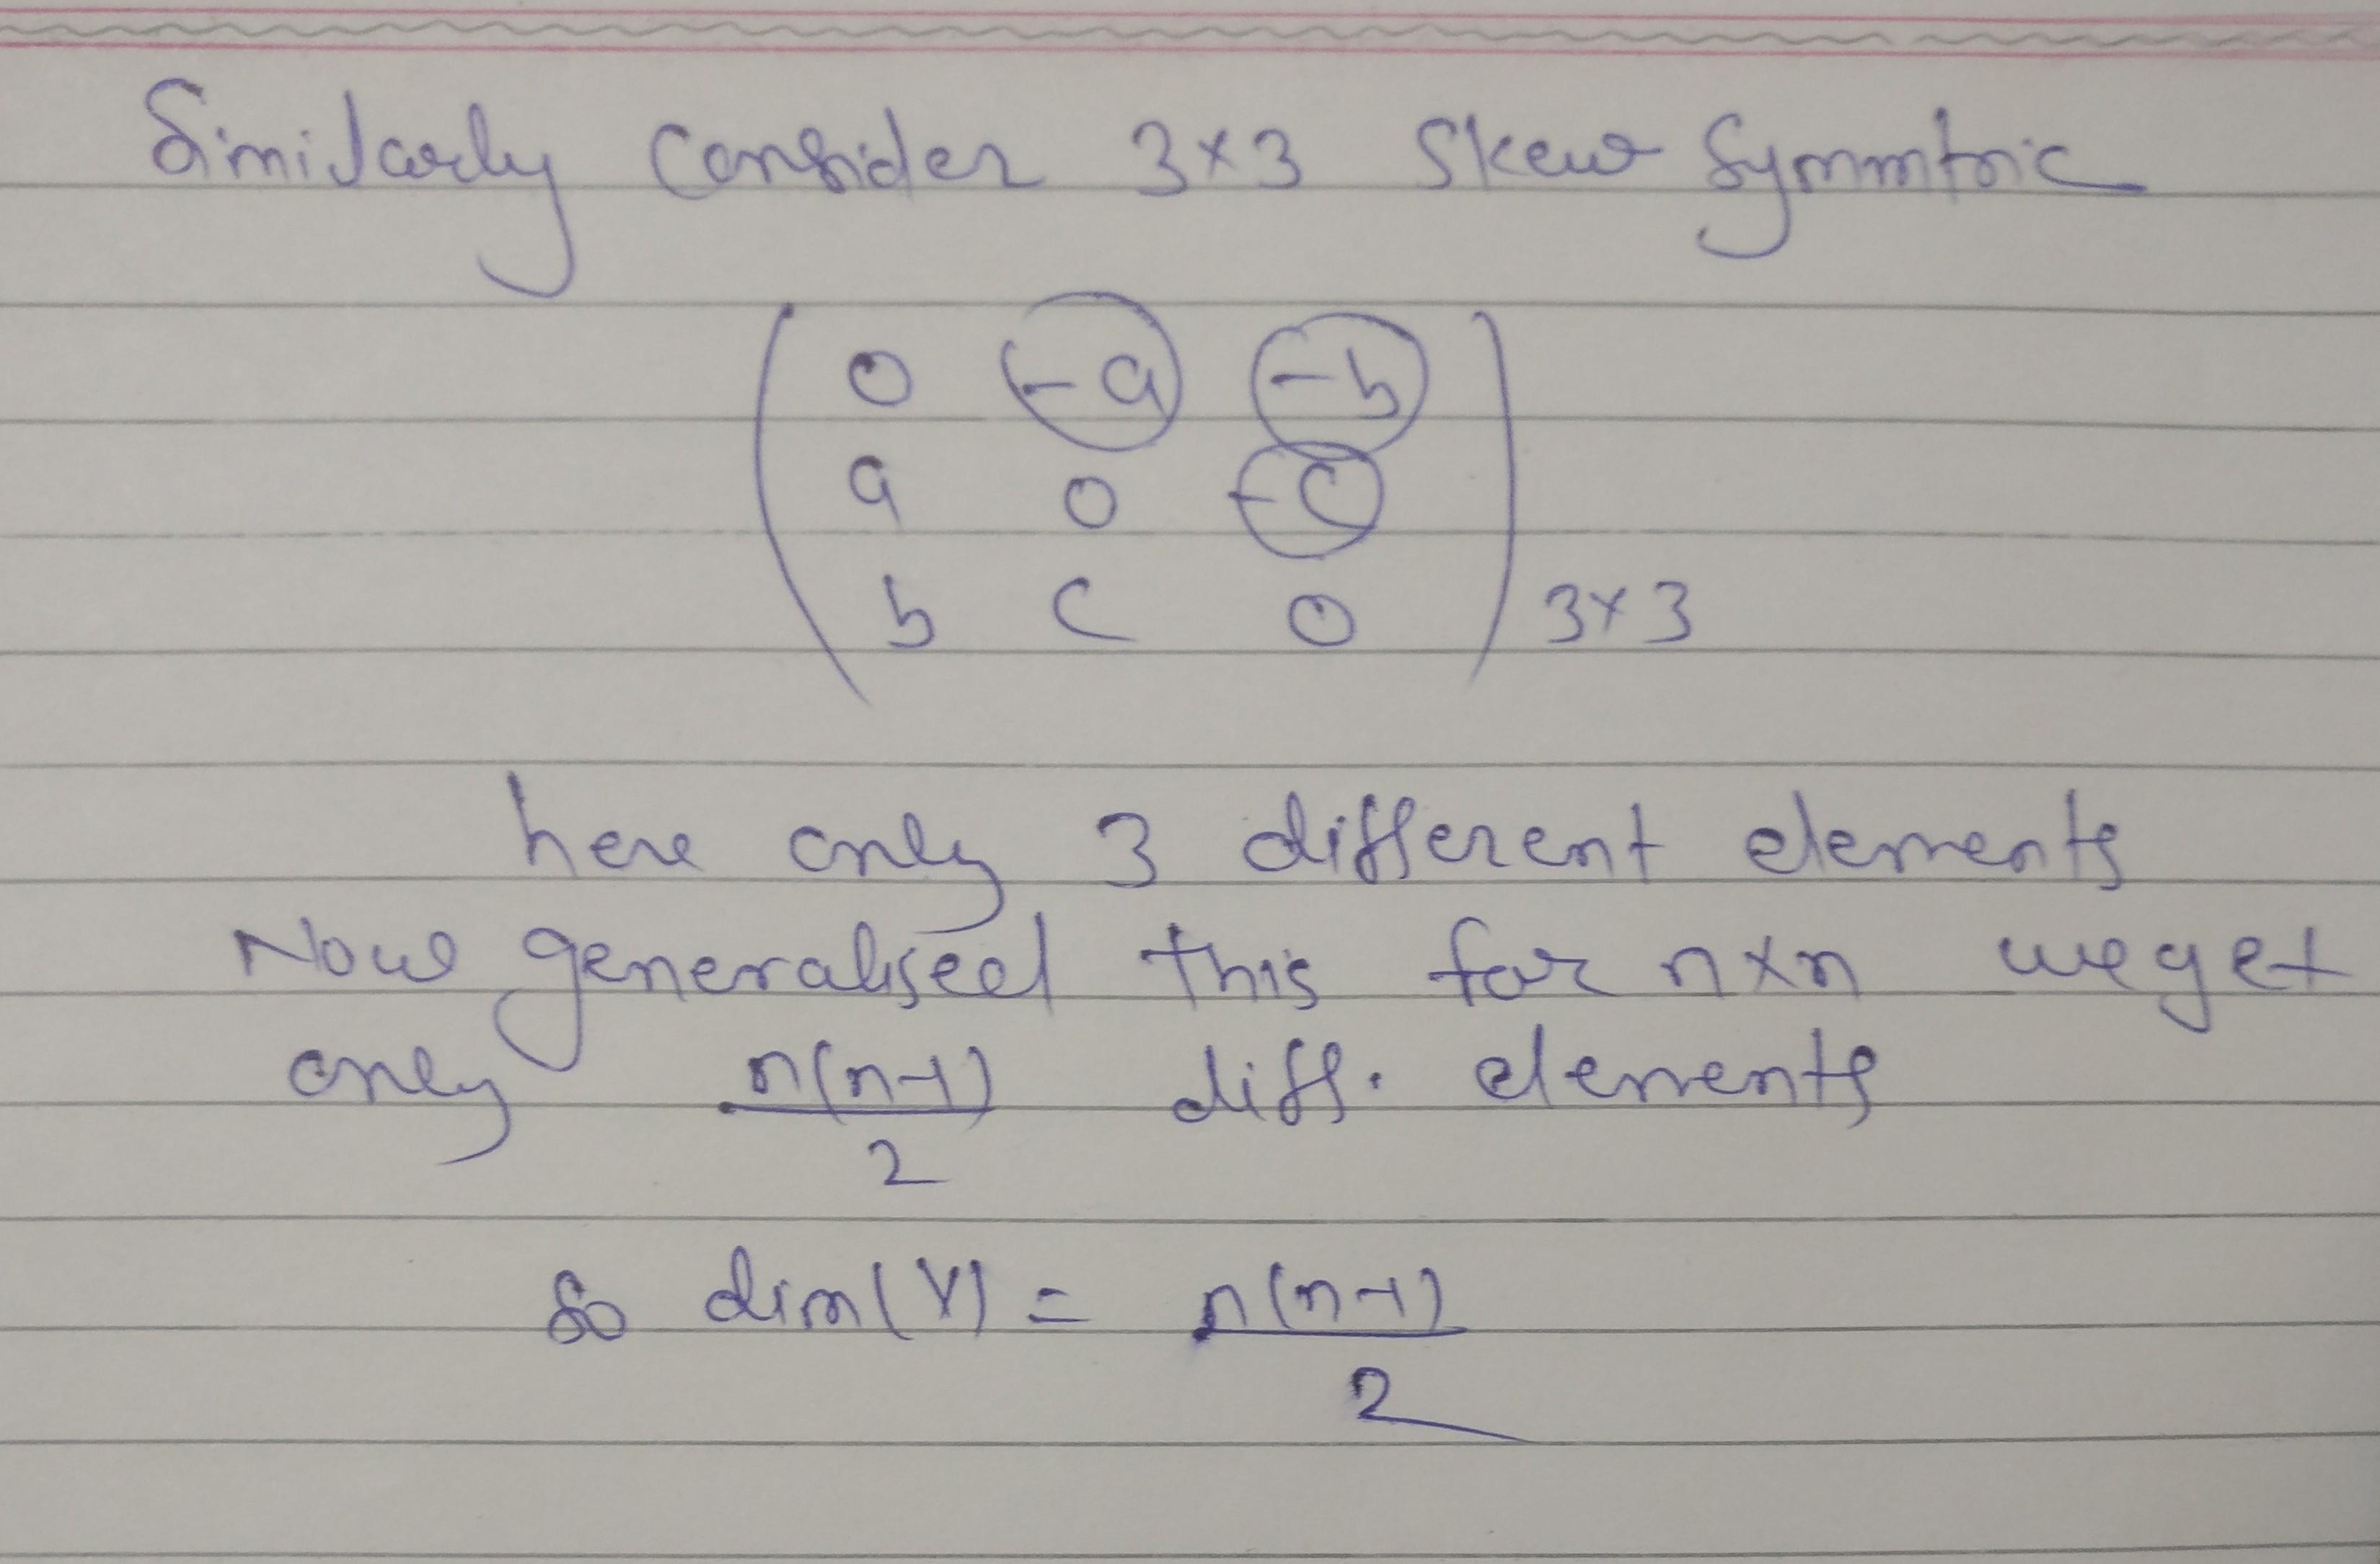 Similarly consider 3×3 Skew Symmtric
0 -a -b
a 0 -c
b c 0 3×3
here only 3 different elements
Now generalised this for n×n we get
only n(n-1)/2 diff. elements
So dim(V) = n(n-1)/2